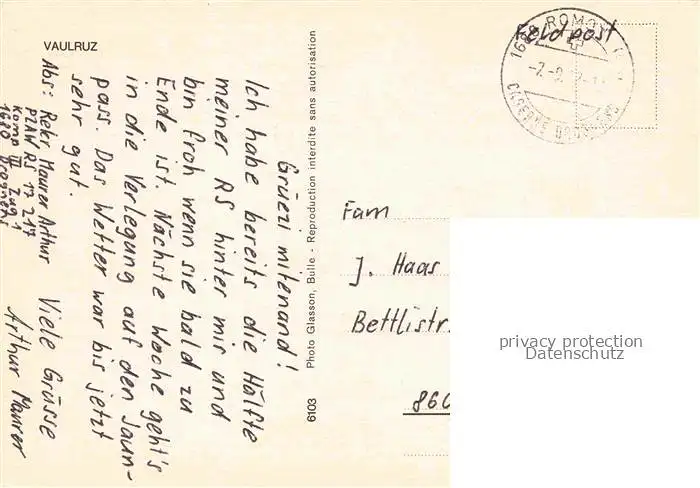 VAULRUZ
Grüezi mitenand!
Ich habe bereits die Hälfte
meiner RS hinter mir und
bin froh wenn sie bald zu
Ende ist. Nächste Woche geht's
in die Verlegung auf den Jaun-
pass. Das Wetter war bis jetzt
sehr gut.
Viele Grüsse
Arthur Maurer
Abs: Rekr Maurer Arthur
PZAW RS 17 217
Komp III Zug 1
1680 Drognens
6103 Photo Glasson, Bulle - Reproduction interdite sans autorisation
Feldpost
1680 ROMONT
-7.-9.
CASERNE
Fam
J. Haas
Bettlistr.
860
privacy protection
Datenschutz